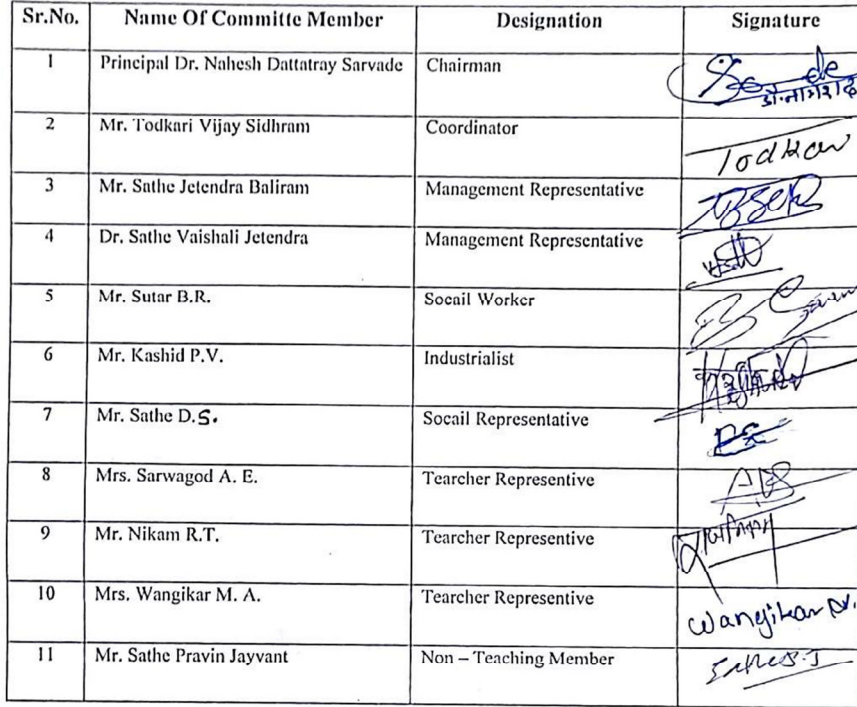 Sr.No. Name Of Committe Member Designation Signature
1 Principal Dr. Nahesh Dattatray Sarvade Chairman
2 Mr. Todkari Vijay Sidhram Coordinator
3 Mr. Sathe Jetendra Baliram Management Representative
4 Dr. Sathe Vaishali Jetendra Management Representative
5 Mr. Sutar B.R. Socail Worker
6 Mr. Kashid P.V. Industrialist
7 Mr. Sathe D.S. Socail Representative
8 Mrs. Sarwagod A. E. Tearcher Representive
9 Mr. Nikam R.T. Tearcher Representive
10 Mrs. Wangikar M. A. Tearcher Representive Wangikar
11 Mr. Sathe Pravin Jayvant Non – Teaching Member